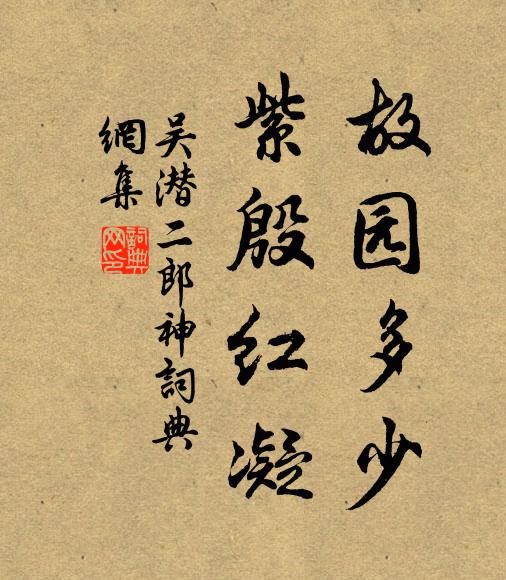 故园多少
紫殷红凝
吴潜二郎神詞典
網集
詞典
网印